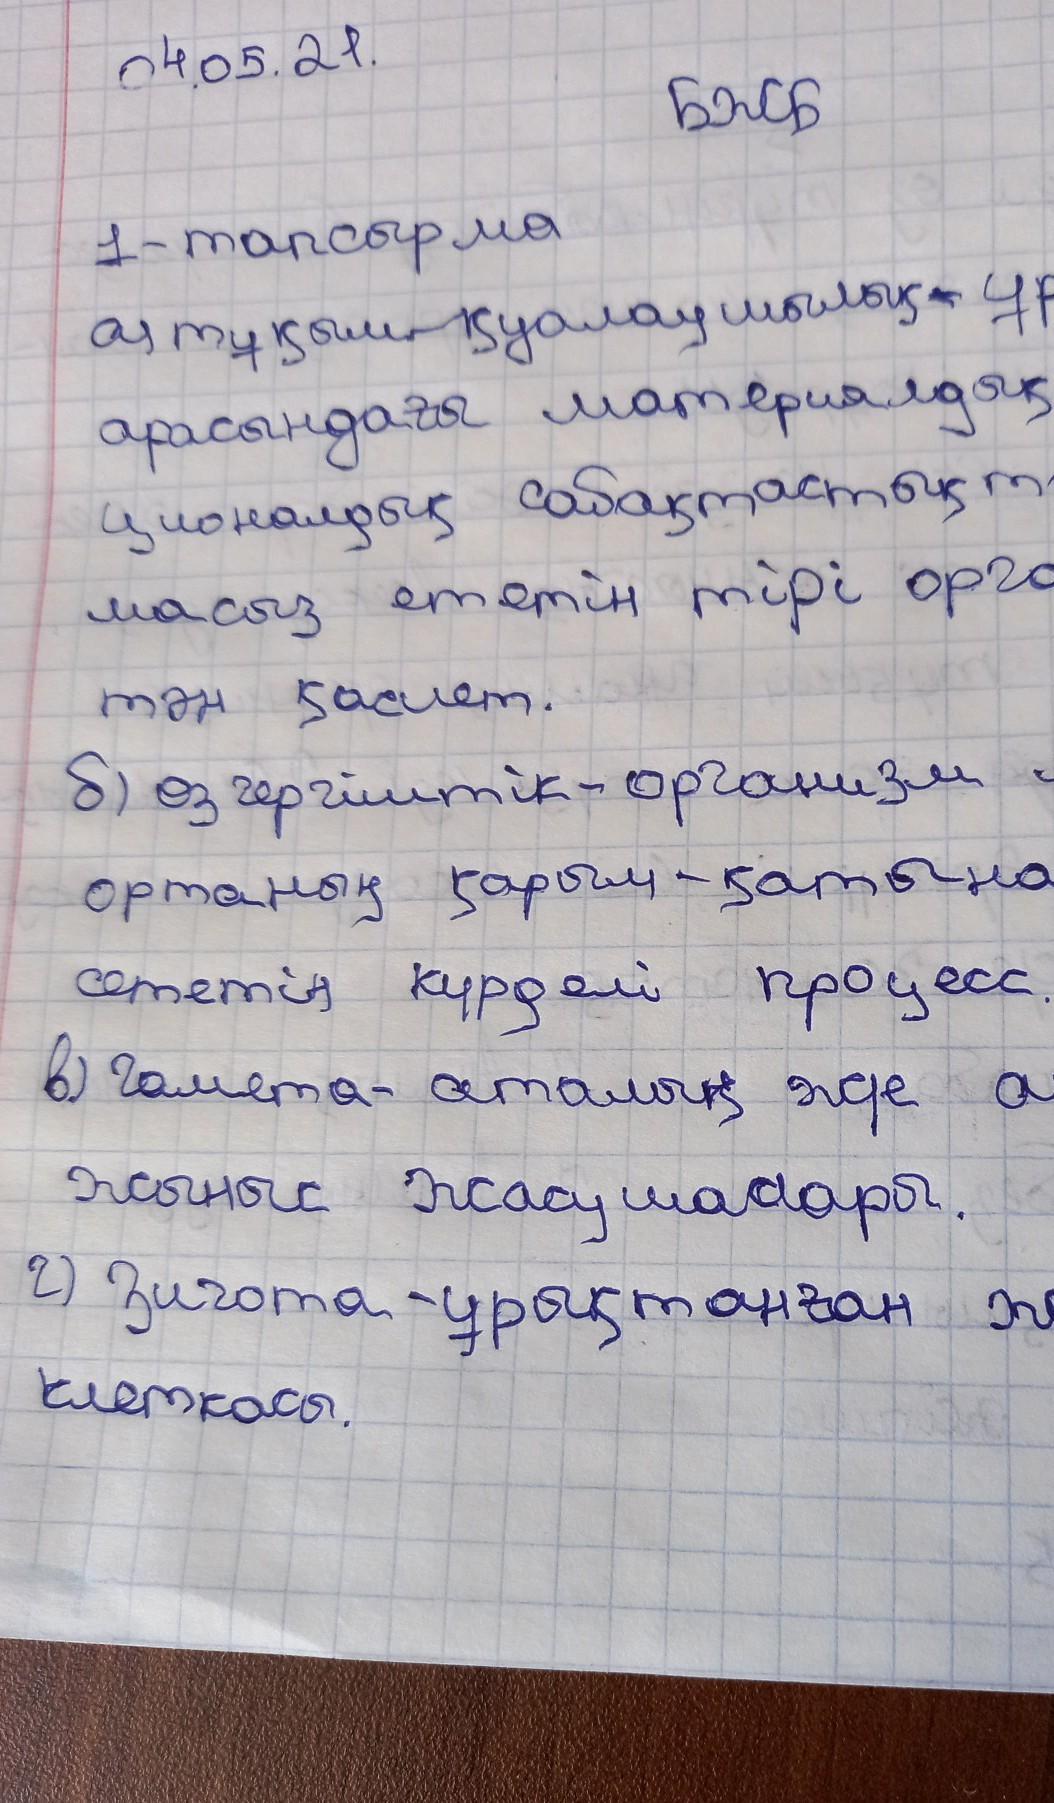 04.05.21.
БЖБ
1-тапсырма
а) тұқым-қуалаушылық- ұр
арасындағы материалдық
ционалдық сабақтастықт
масыз ететін тірі орга
тән қасиет.
б) өзгергіштік-организм
ортаның қарым-қатына
сететін күрделі процесс.
в) Гамета- аталық және а
жыныс жасушадары.
г) Зигота-ұрықтанған ж
клеткасы.